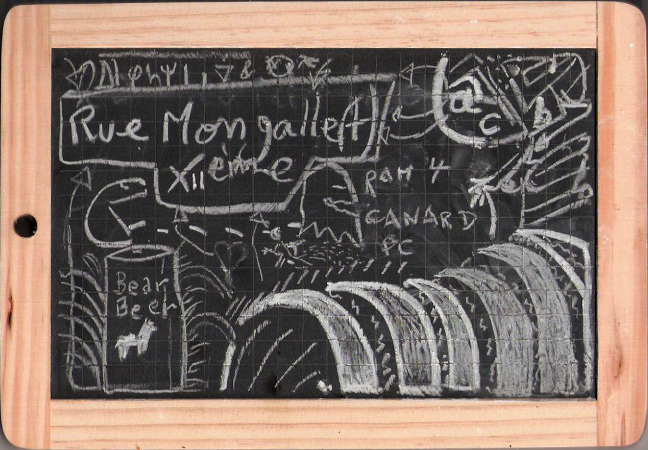 Rue Mongallet
XIIième
a
c
b
CANARD
PC
Bear
Beer